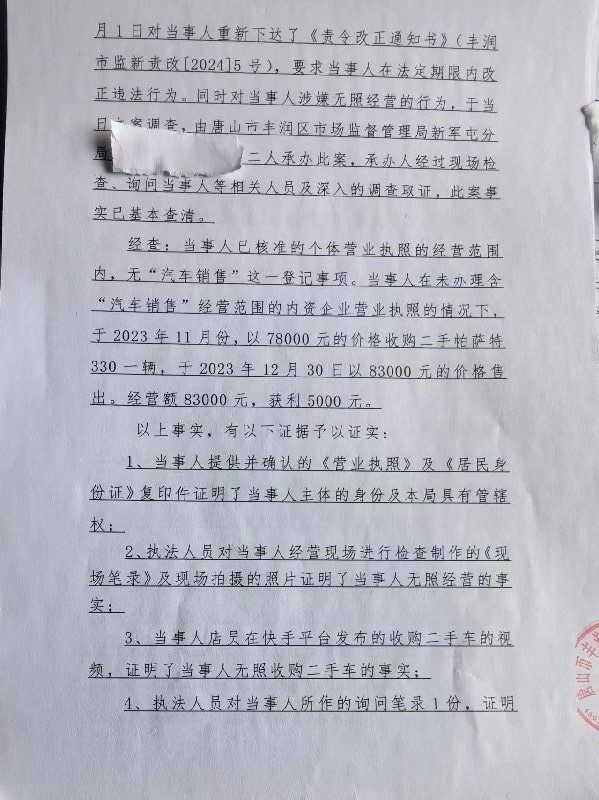 月1日对当事人重新下达了《责令改正通知书》（丰润
市监新责改[2024]5号），要求当事人在法定期限内改
正违法行为。同时对当事人涉嫌无照经营的行为，于当
日立案调查，由唐山市丰润区市场监督管理局新军屯分
局 二人承办此案，承办人经过现场检
查、询问当事人等相关人员及深入的调查取证，此案事
实已基本查清。
经查：当事人已核准的个体营业执照的经营范围
内，无“汽车销售”这一登记事项。当事人在未办理含
“汽车销售”经营范围的内资企业营业执照的情况下，
于2023年11月份，以78000元的价格收购二手帕萨特
330一辆，于2023年12月30日以83000元的价格售
出。经营额83000元，获利5000元。
以上事实，有以下证据予以证实：
1、当事人提供并确认的《营业执照》及《居民身
份证》复印件证明了当事人主体的身份及本局具有管辖
权；
2、执法人员对当事人经营现场进行检查制作的《现
场笔录》及现场拍摄的照片证明了当事人无照经营的事
实；
3、当事人店员在快手平台发布的收购二手车的视
频，证明了当事人无照收购二手车的事实；
4、执法人员对当事人所作的询问笔录1份，证明
唐山市丰